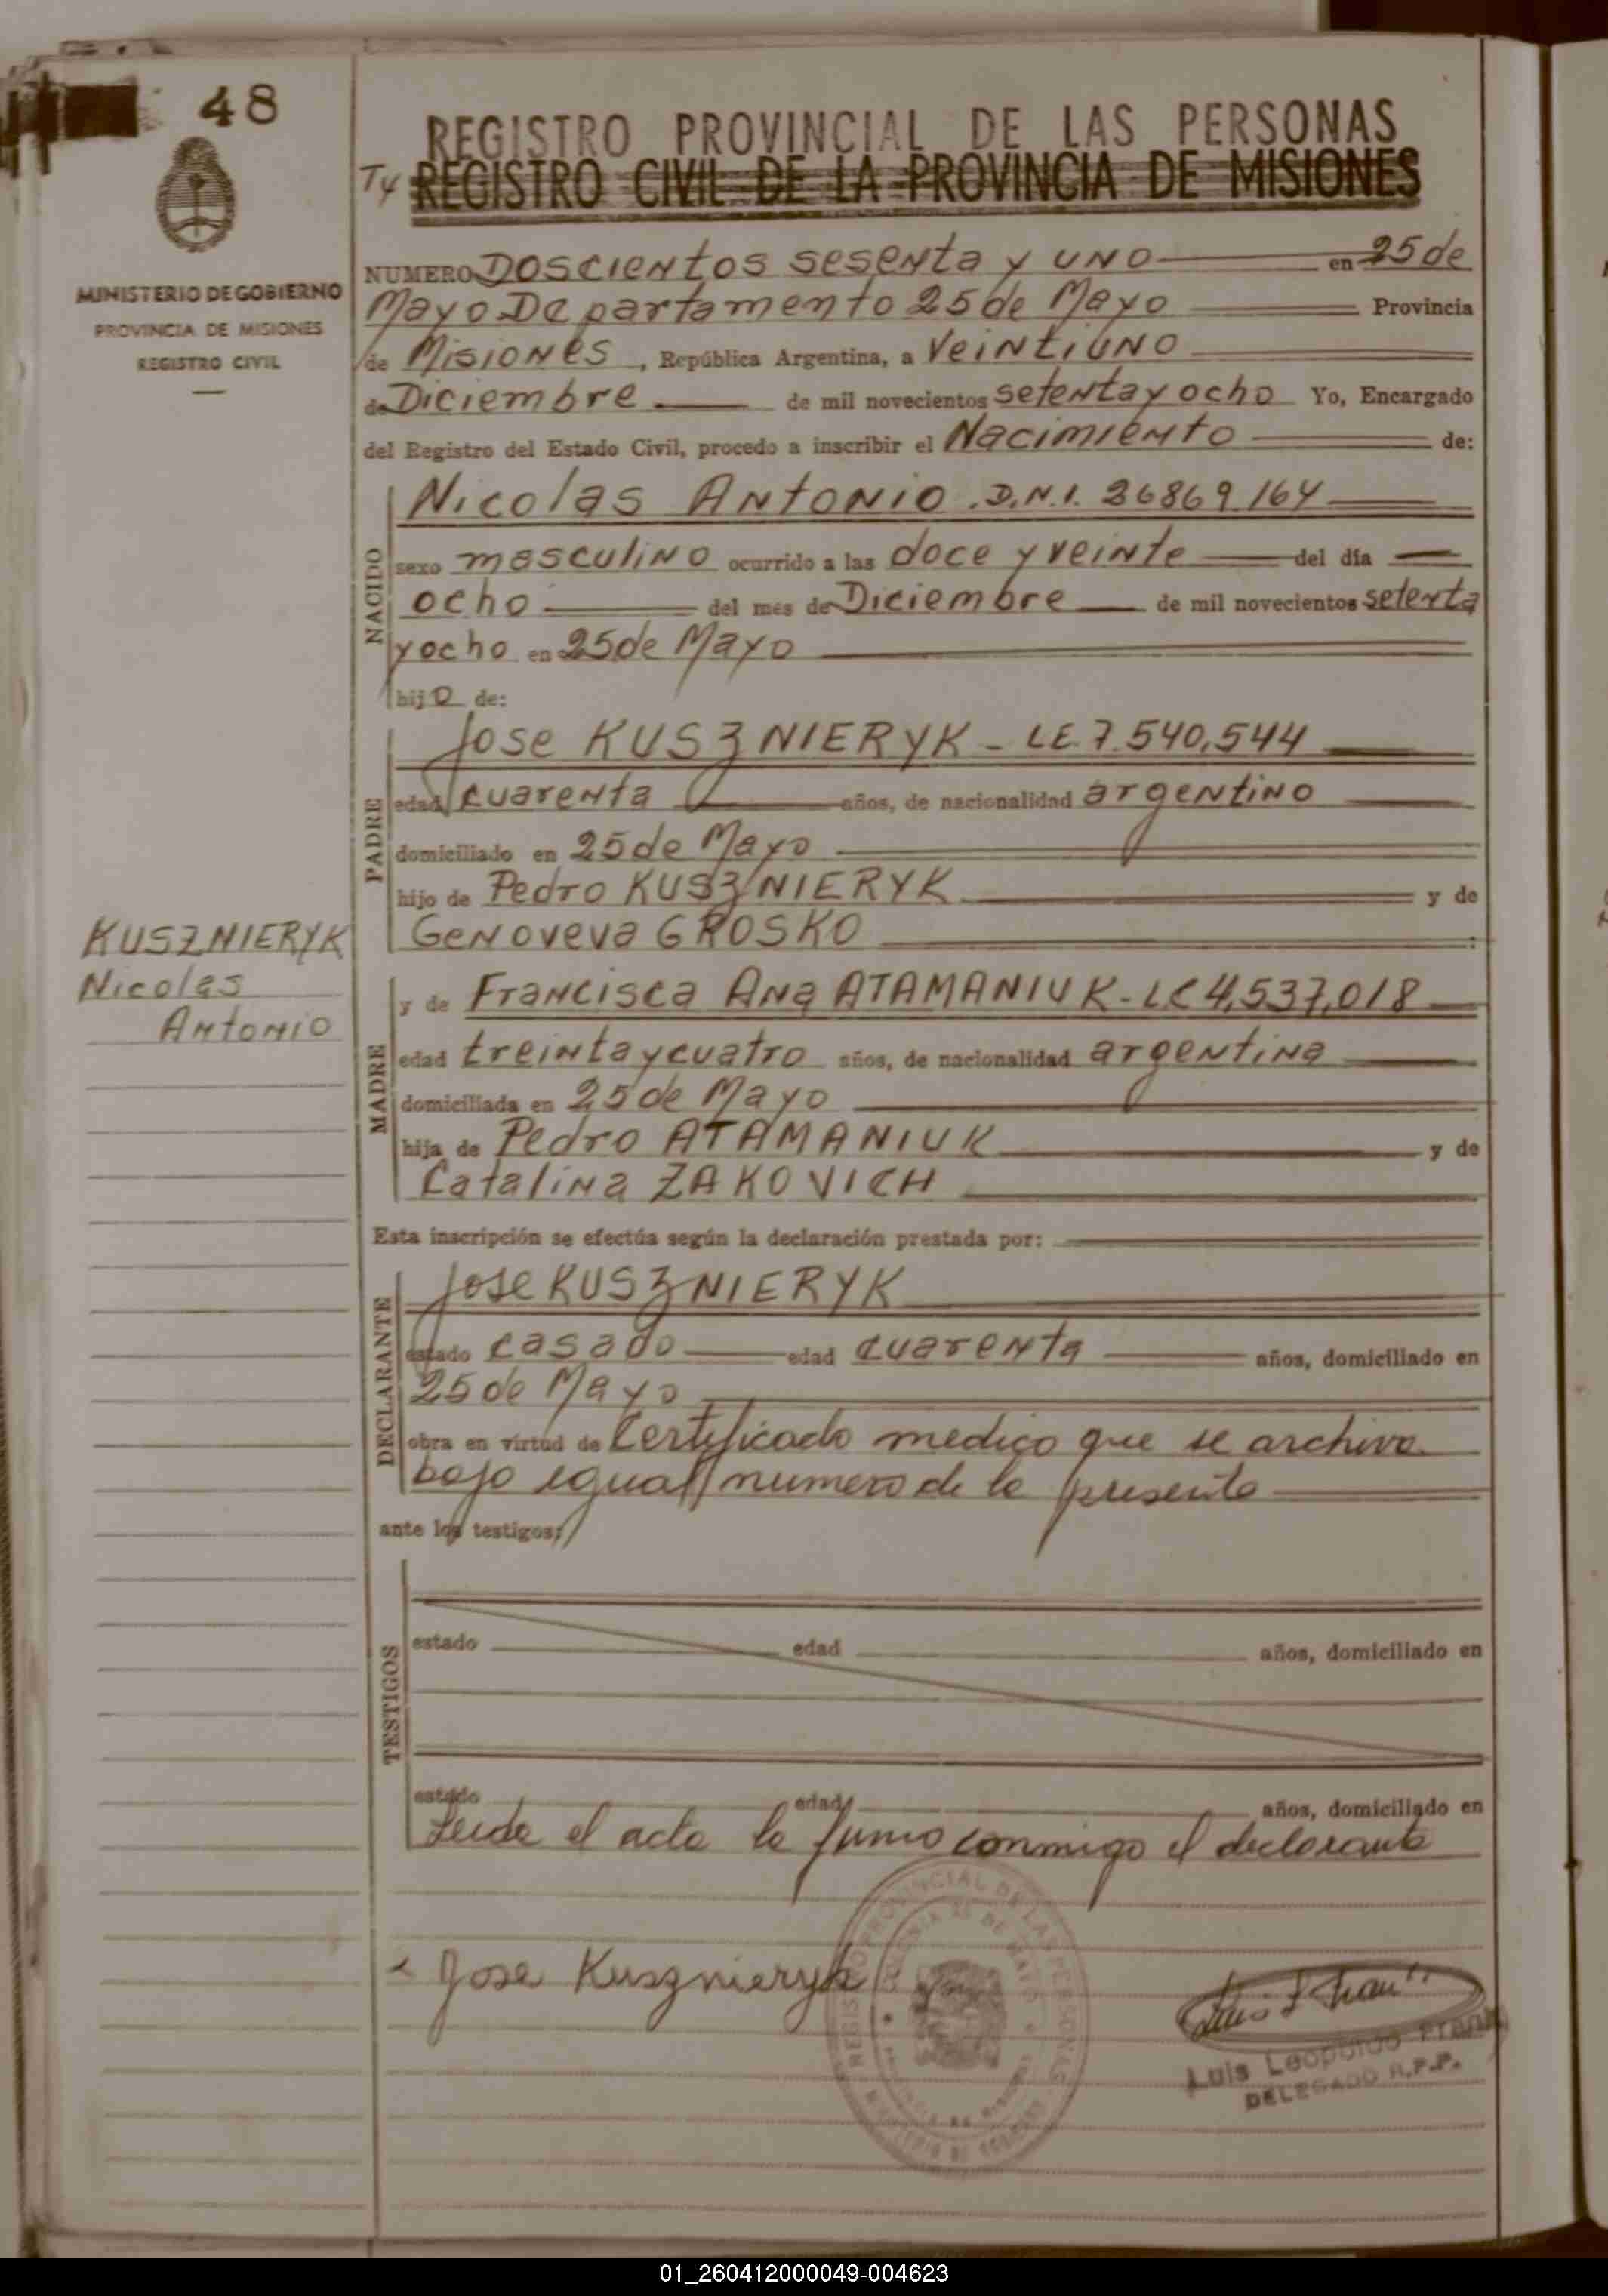 48
REGISTRO PROVINCIAL DE LAS PERSONAS
Ty REGISTRO CIVIL DE LA PROVINCIA DE MISIONES
MINISTERIO DE GOBIERNO
PROVINCIA DE MISIONES
REGISTRO CIVIL
NUMERO DOSCIENtos sesenta y UNO en 25 de
Mayo Departamento 25 de Mayo Provincia
de MISIONES, República Argentina, a VeiNtiUNO
de Diciembre de mil novecientos setenta y ocho Yo, Encargado
del Registro del Estado Civil, procedo a inscribir el Nacimiento de:
NACIDO
Nicolas ANtONIO. D.N.I. 26869.164
sexo masculiNO ocurrido a las doce y veinte del día
ocho del mes de Diciembre de mil novecientos setenta
y ocho en 25 de Mayo
hijo de:
PADRE
Jose KUSZNIERYK - LE.7.540.544
edad cuarenta años, de nacionalidad argentino
domiciliado en 25 de Mayo
hijo de Pedro KUSZNIERYK y de
Genoveva GROSKO
KUSZNIERYK
Nicolas
Antonio
MADRE
y de Francisca Ana ATAMANIUK - LC 4,537,018
edad treinta y cuatro años, de nacionalidad argentina
domiciliada en 25 de Mayo
hija de Pedro ATAMANIUK y de
Catalina ZAKOVICH
Esta inscripción se efectúa según la declaración prestada por:
DECLARANTE
Jose KUSZNIERYK
estado casado edad cuarenta años, domiciliado en
25 de Mayo
obra en virtud de Certificado medico que se archiva
bajo igual numero de la presente
ante los testigos:
TESTIGOS
estado edad años, domiciliado en
estado edad años, domiciliado en
Leida el acta la firmo conmigo el declarante
Jose Kusznieryk
REGISTRO PROVINCIAL DE LAS PERSONAS
25 DE MAYO
Luis Leopoldo
DELEGADO R.P.P.
01_260412000049-004623